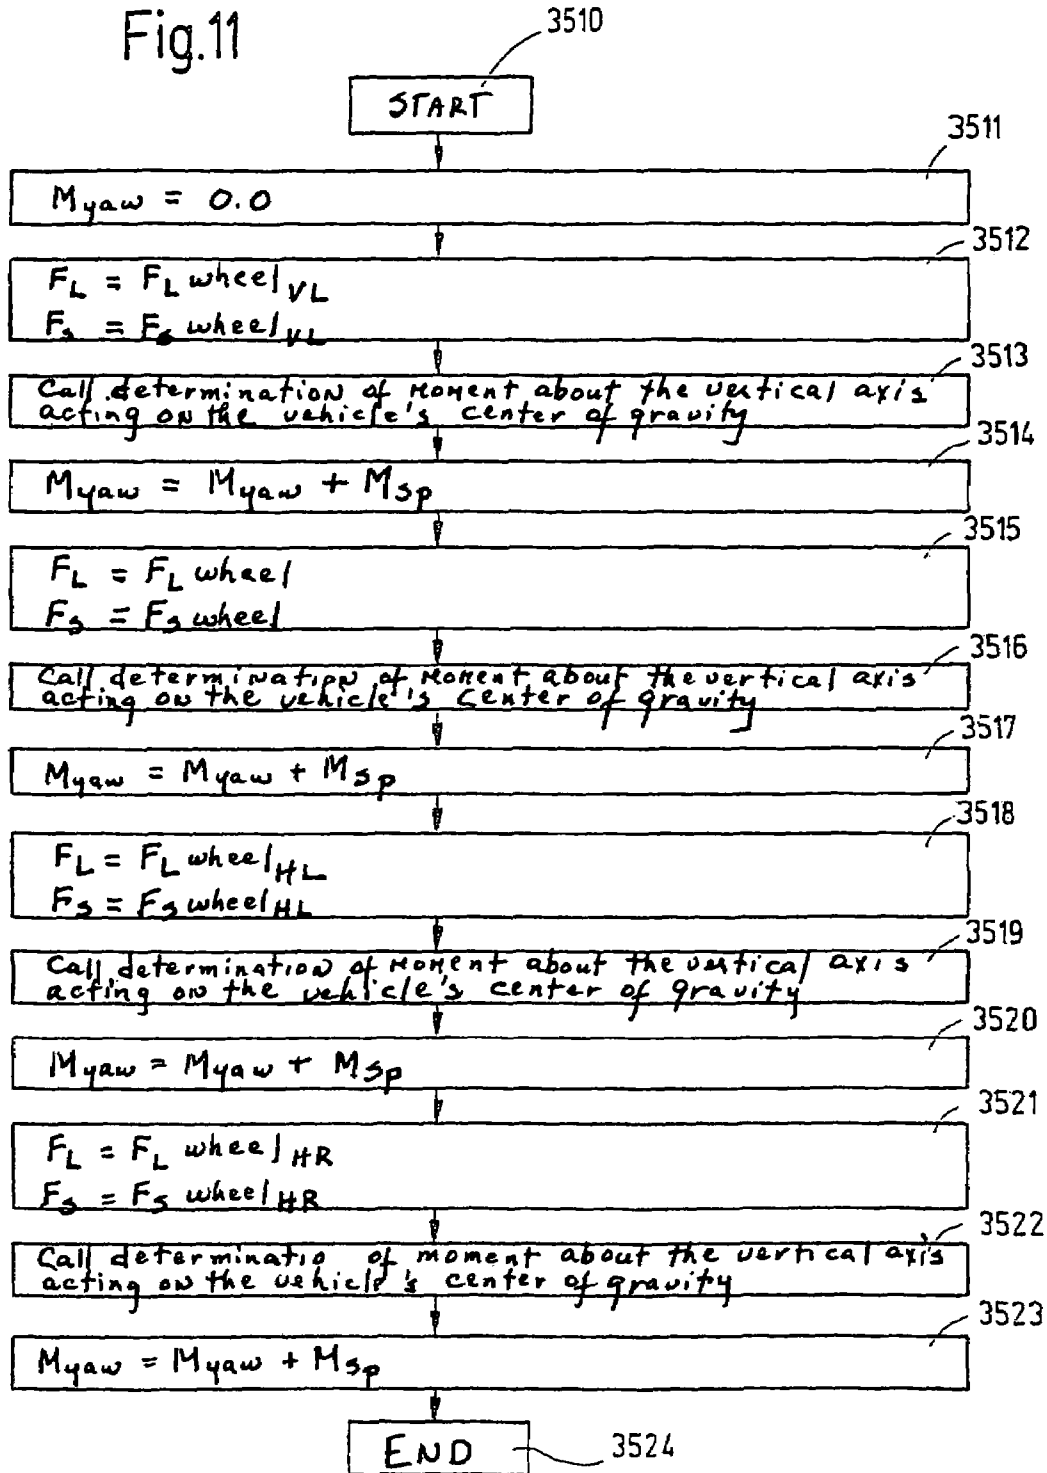 Fig.11
3510
START
3511
Myaw = 0.0
3512
FL = FL wheel VL
Fs = Fs wheel VL
3513
Call determination of moment about the vertical axis
acting on the vehicle's center of gravity
3514
Myaw = Myaw + Msp
3515
FL = FL wheel
Fs = Fs wheel
3516
Call determination of moment about the vertical axis
acting on the vehicle's center of gravity
3517
Myaw = Myaw + Msp
3518
FL = FL wheel HL
Fs = Fs wheel HL
3519
Call determination of moment about the vertical axis
acting on the vehicle's center of gravity
3520
Myaw = Myaw + Msp
3521
FL = FL wheel HR
Fs = Fs wheel HR
3522
Call determinatio of moment about the vertical axis
acting on the vehicle's center of gravity
3523
Myaw = Myaw + Msp
END
3524